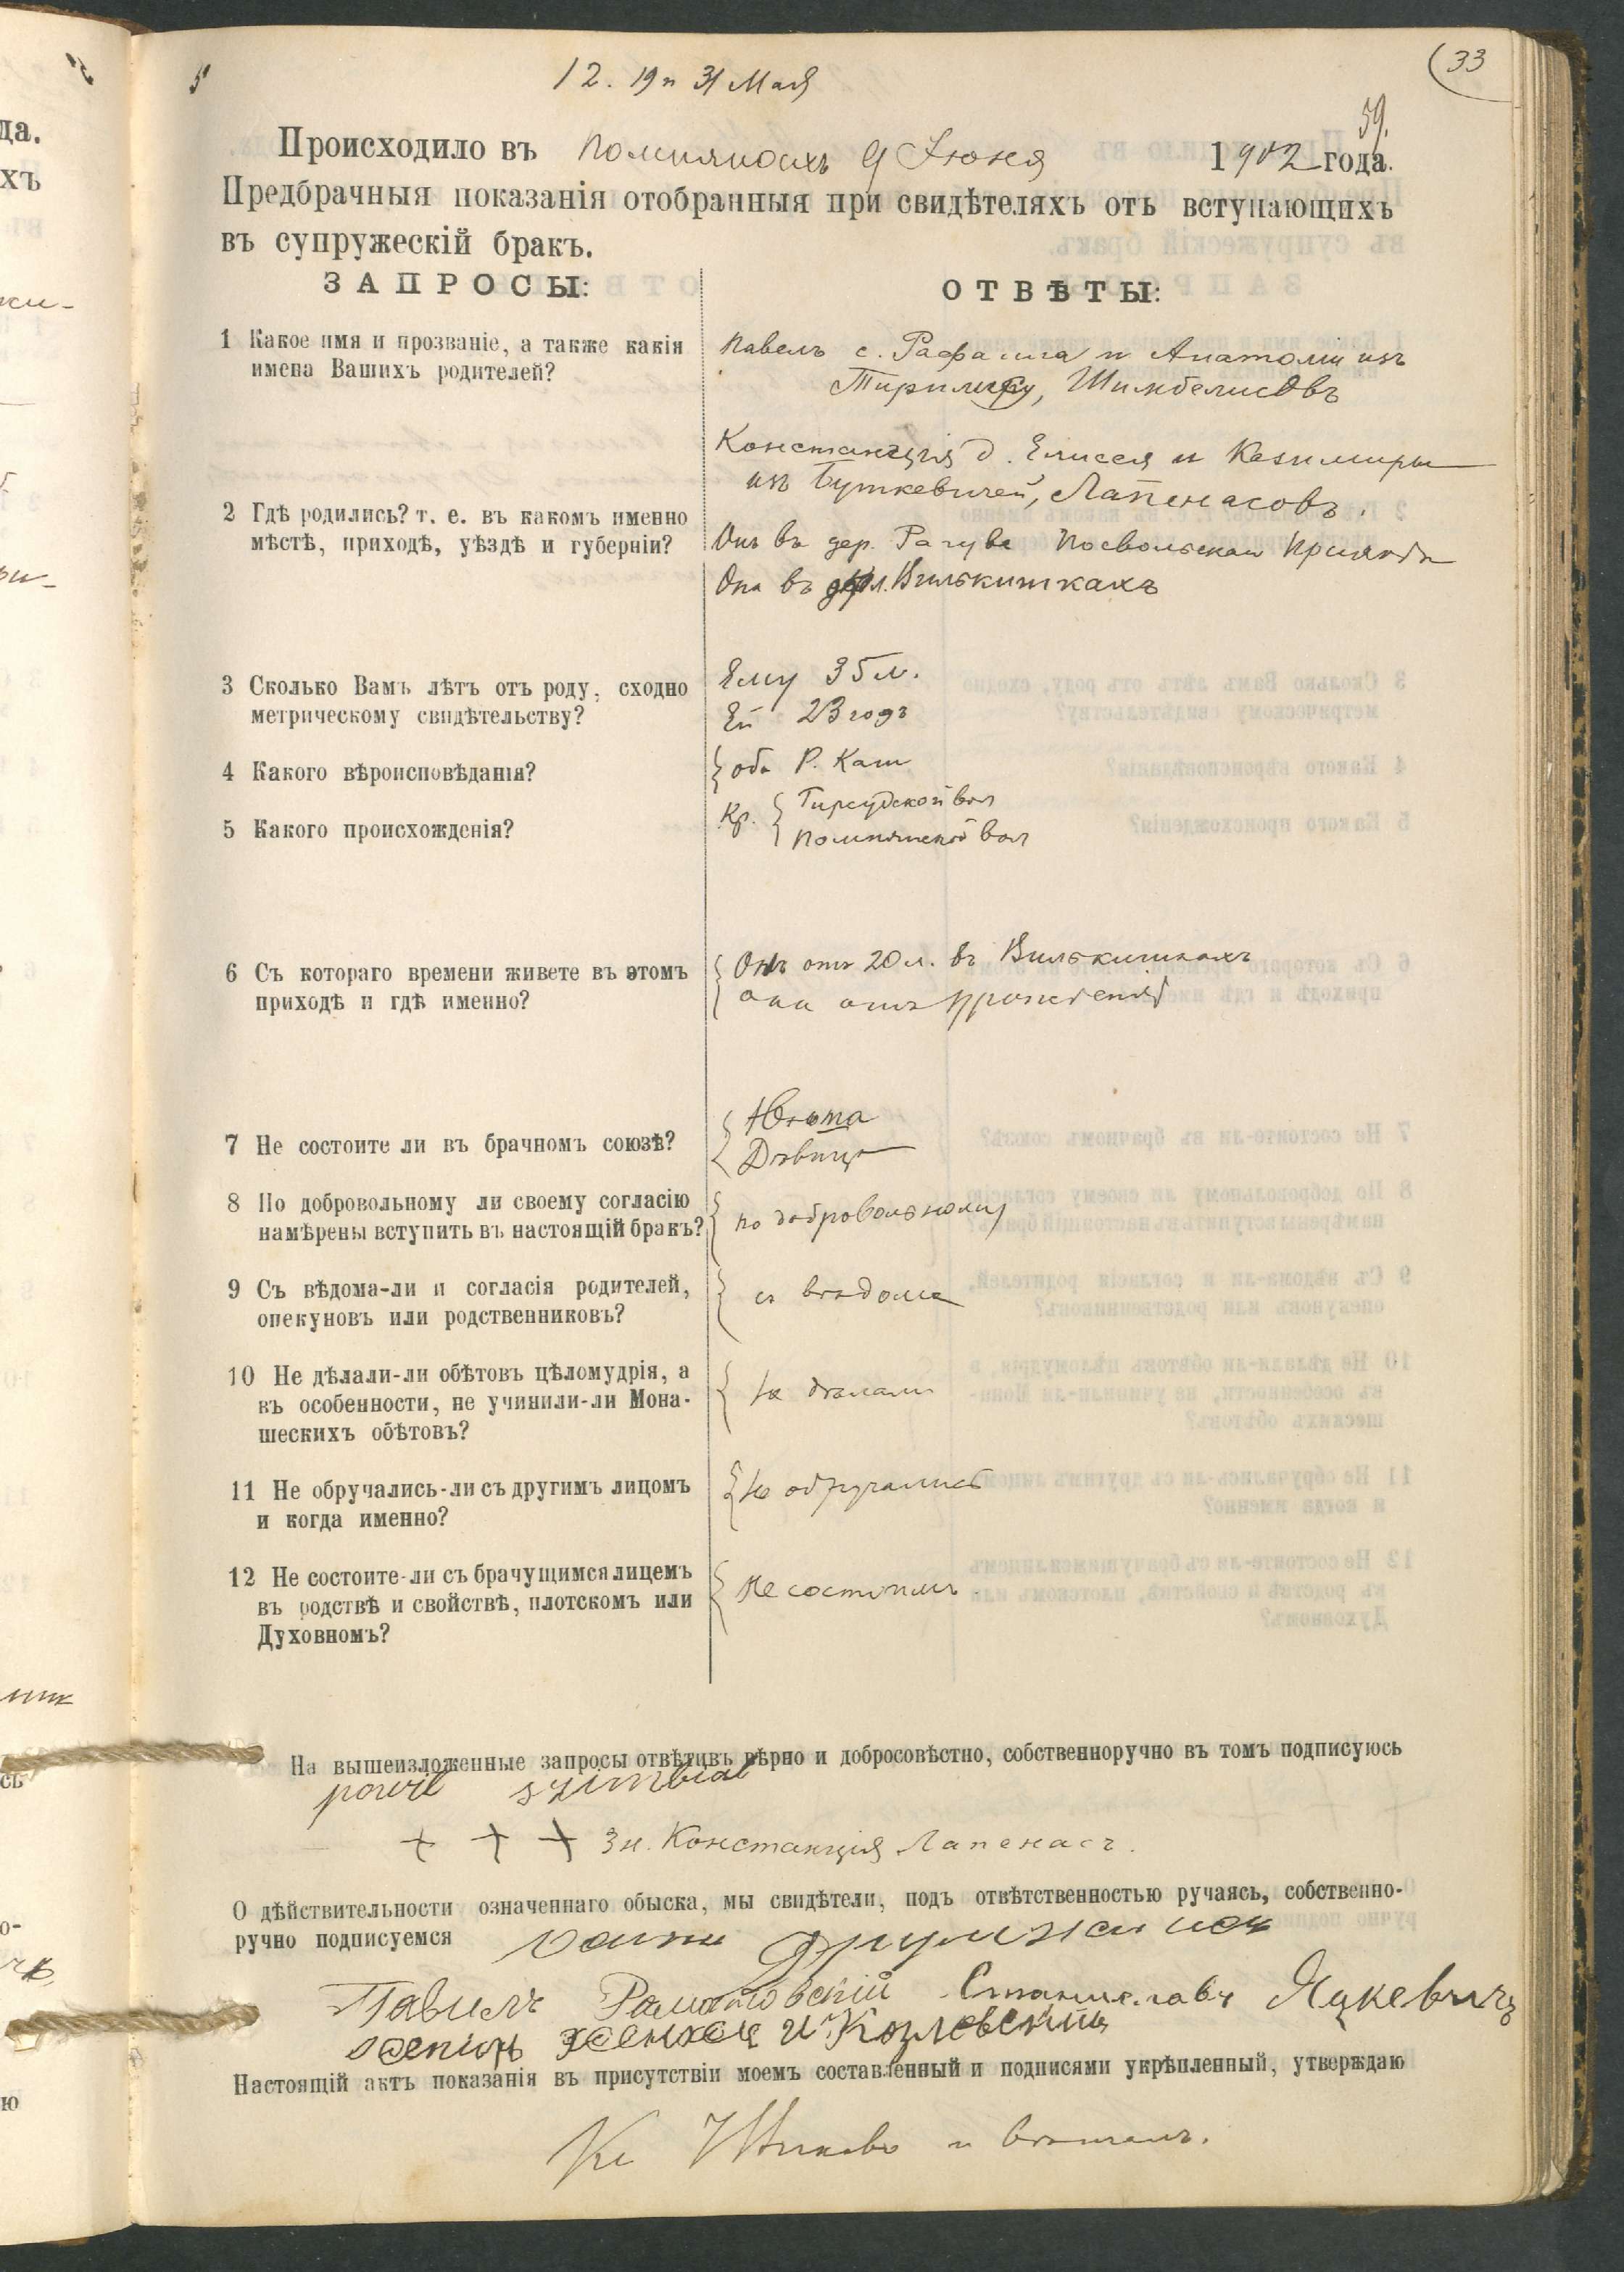 5
12. 19 и 31 Мая
33
59.
Происходило въ Помпянахъ 9 Іюня 1902 года.
Предбрачныя показанія отобранныя при свидѣтеляхъ отъ вступающихъ
въ супружескій бракъ.
ЗАПРОСЫ:
ОТВѢТЫ:
1 Какое имя и прозваніе, а также какія
имена Вашихъ родителей?
Павелъ с. Рафаила и Анатоліи изъ
Шимбелисовъ
Констанція д. Елисея и Казимиры
изъ Буткевичей, Лапенасовъ.
2 Гдѣ родились? т. е. въ какомъ именно
мѣстѣ, приходѣ, уѣздѣ и губерніи?
Онъ въ дер. Рагува Посвольскаго прихода
Она въ Вилькишкахъ
3 Сколько Вамъ лѣтъ отъ роду, сходно
метрическому свидѣтельству?
Ему 35 л.
Ей 23 годъ
4 Какого вѣроисповѣданія?
оба Р. Кат
5 Какого происхожденія?
Кр. Гирсудской вол
Помпянской вол
6 Съ котораго времени живете въ этомъ
приходѣ и гдѣ именно?
Онъ отъ 20 л. въ Вилькишкахъ
она отъ рожденія
7 Не состоите ли въ брачномъ союзѣ?
Юноша
Дѣвица
8 По добровольному ли своему согласію
намѣрены вступить въ настоящій бракъ?
по добровольному
9 Съ вѣдома-ли и согласія родителей,
опекуновъ или родственниковъ?
съ вѣдома
10 Не дѣлали-ли обѣтовъ цѣломудрія, а
въ особенности, не учинили-ли Мона-
шескихъ обѣтовъ?
Не дѣлали
11 Не обручались-ли съ другимъ лицомъ
и когда именно?
Не обручались
12 Не состоите-ли съ брачущимся лицемъ
въ родствѣ и свойствѣ, плотскомъ или
Духовномъ?
Не состоимъ
На вышеизложенные запросы отвѣтивъ вѣрно и добросовѣстно, собственноручно въ томъ подписуюсь
+ + + Зн. Констанція Лапенасъ.
О дѣйствительности означеннаго обыска, мы свидѣтели, подъ отвѣтственностью ручаясь, собственно-
ручно подписуемся
Павилъ Станиславъ Яцкевичъ
и Козловскій
Настоящій актъ показанія въ присутствіи моемъ составленный и подписями укрѣпленный, утверждаю
и вѣнчалъ.